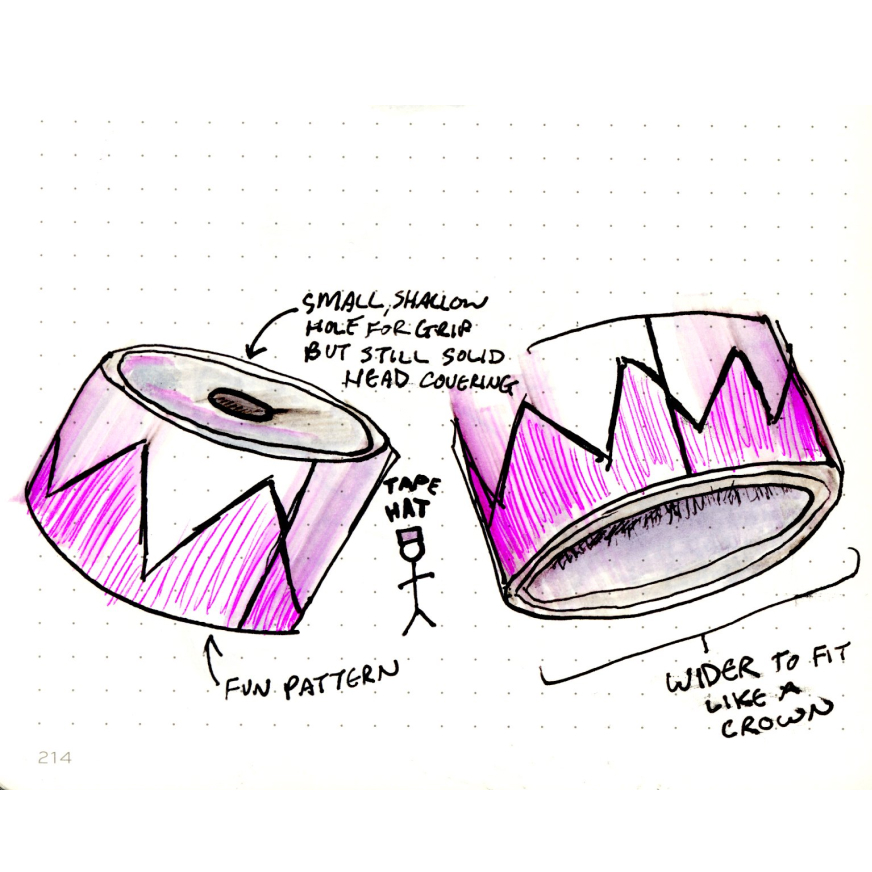 SMALL, SHALLOW
HOLE FOR GRIP
BUT STILL SOLID
HEAD COVERING
TAPE
HAT
FUN PATTERN
WIDER TO FIT
LIKE A
CROWN
214